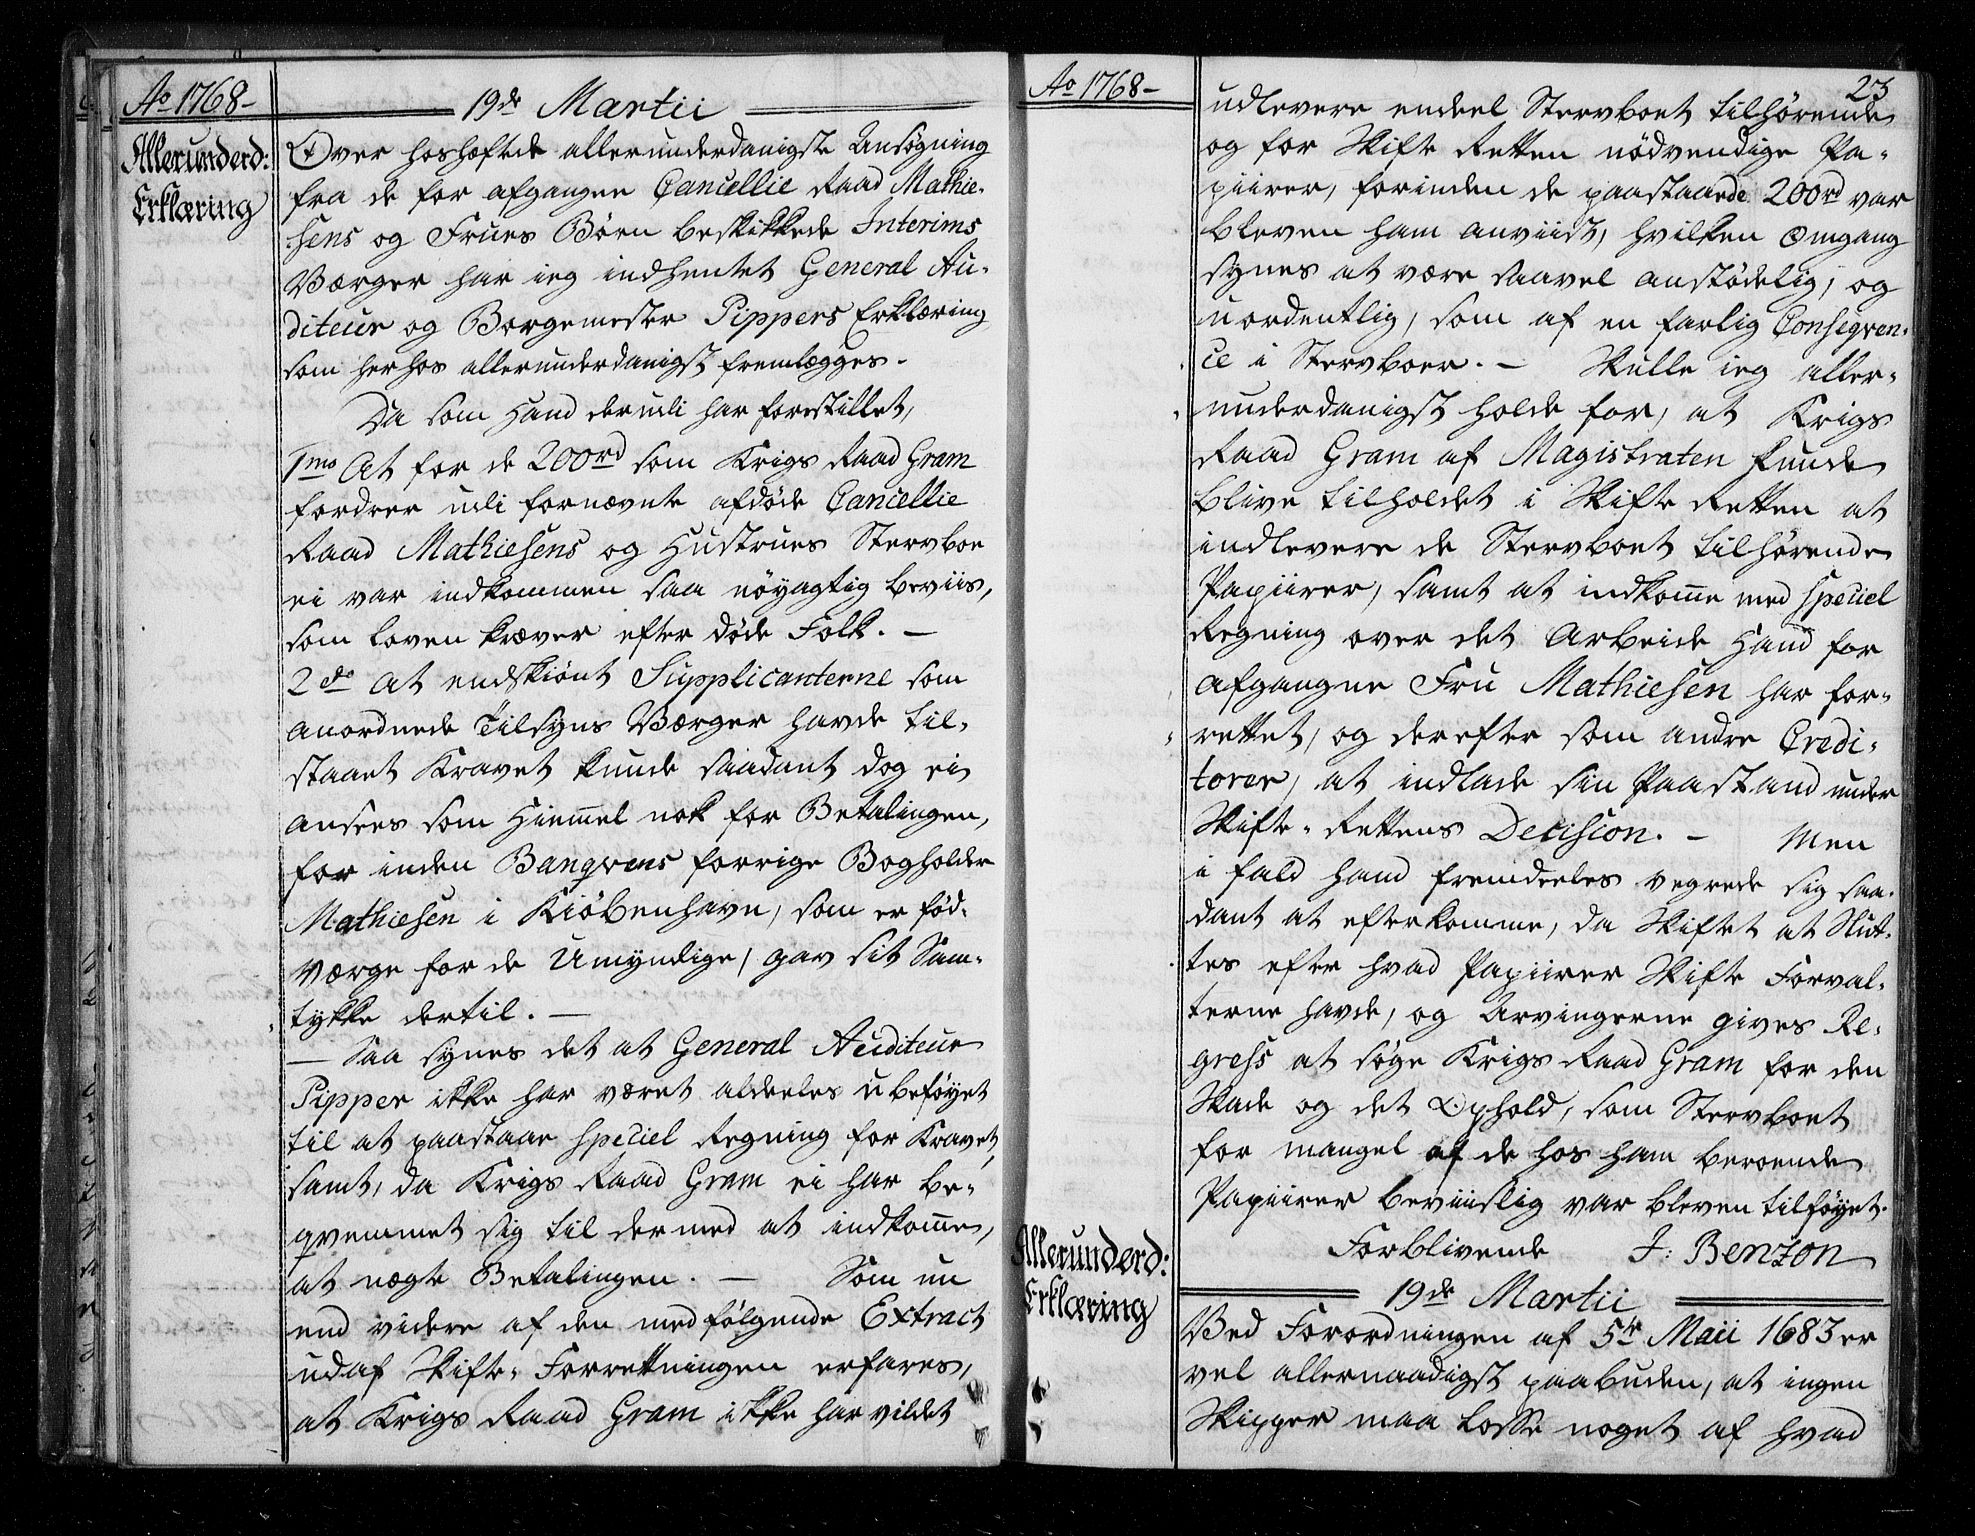 Ao 1768-
19de Martii
Allerunderd:
Erklæring
Over hoshæftede allerunderdanigste Ansøgning
fra de for afgangen Cancellie Raad Mathie-
sens og Frues Børn beskikkede Interims
Værger har ieg indhentet General Au-
diteur og Borgemester Pippers Erklæring
som herhos allerunderdanigst fremlægges.
Da som Hand derudi har forestillet,
1mo At for de 200rd som Krigs Raad Gram
fordrer udi fornævnte afdøde Cancellie
Raad Mathiesens og Hustrues Stervboe
ei var indkommen saa nøyagtig beviis,
som loven kræver efter døde Folk. -
2do At endskiønt Supplicanterne som
anordnede Tilsyns Værger havde til-
staaet Kravet kunde saadant dog ei
ansees som Hiemmel nok for Betalingen,
for inden Banqvens forrige Bogholder
Mathiesen i Kiöbenhavn, som er fød-
værge for de Umyndige, gav sit Sam-
tykke dertil. -
- Saa synes det at General Auditeur
Pipper ikke har været aldeeles ubeföyet
til at paastaae speciel Regning for Kravet,
samt, da Krigs Raad Gram ei har be-
qvemmet sig til dermed at indkome,
at nægte Betalingen. - Som nu
end videre af den medfølgende Extract
udaf Skifte-Forretningen erfares,
at Krigs Raad Gram ikke har vildet
Ao 1768-
23
udlevere endeel Stervboet tilhørende
og for Skifte Retten nödvendige Pa-
piirer, forinden de paastaaede 200rd var
bleven ham anviist, hvilken Omgang
synes at være saavel anstödelig, og
uordentlig, som af en farlig Conseqven-
ce i Stervboer. - Skulle ieg aller-
underdanigst holde for, at Krigs
Raad Gram af Magistraten kunde
blive tilholdet i Skifte Retten at
indlevere de Stervboet tilhørende
Papiirer, samt at indkome med speciel
Regning over det Arbeide Hand for
afgangne Fru Mathiesen har for-
rettet, og derefter som andre Credi-
torer, at indlade sin Paastand under
Skifte-Rettens Decision. - Men
i fald hand fremdeeles vegrede sig saa-
dant at efterkomme, da Skiftet at Slut-
tes efter hvad Papiirer Skifte Forval-
terne havde, og Arvingerne gives Re-
gress at søge Krigs Raad Gram for den
Skade og det Ophold, som Stervboet
for mangel af de hos ham beroende
Papiirer beviislig var bleven tilföyet.
Forblivende J: Benzon
Allerunderd:
Erklæring
19de Martii
Ved Forordningen af 5te Maii 1683 er
vel allernaadigst paabuden, at ingen
Skipper maa losse noget af hvad